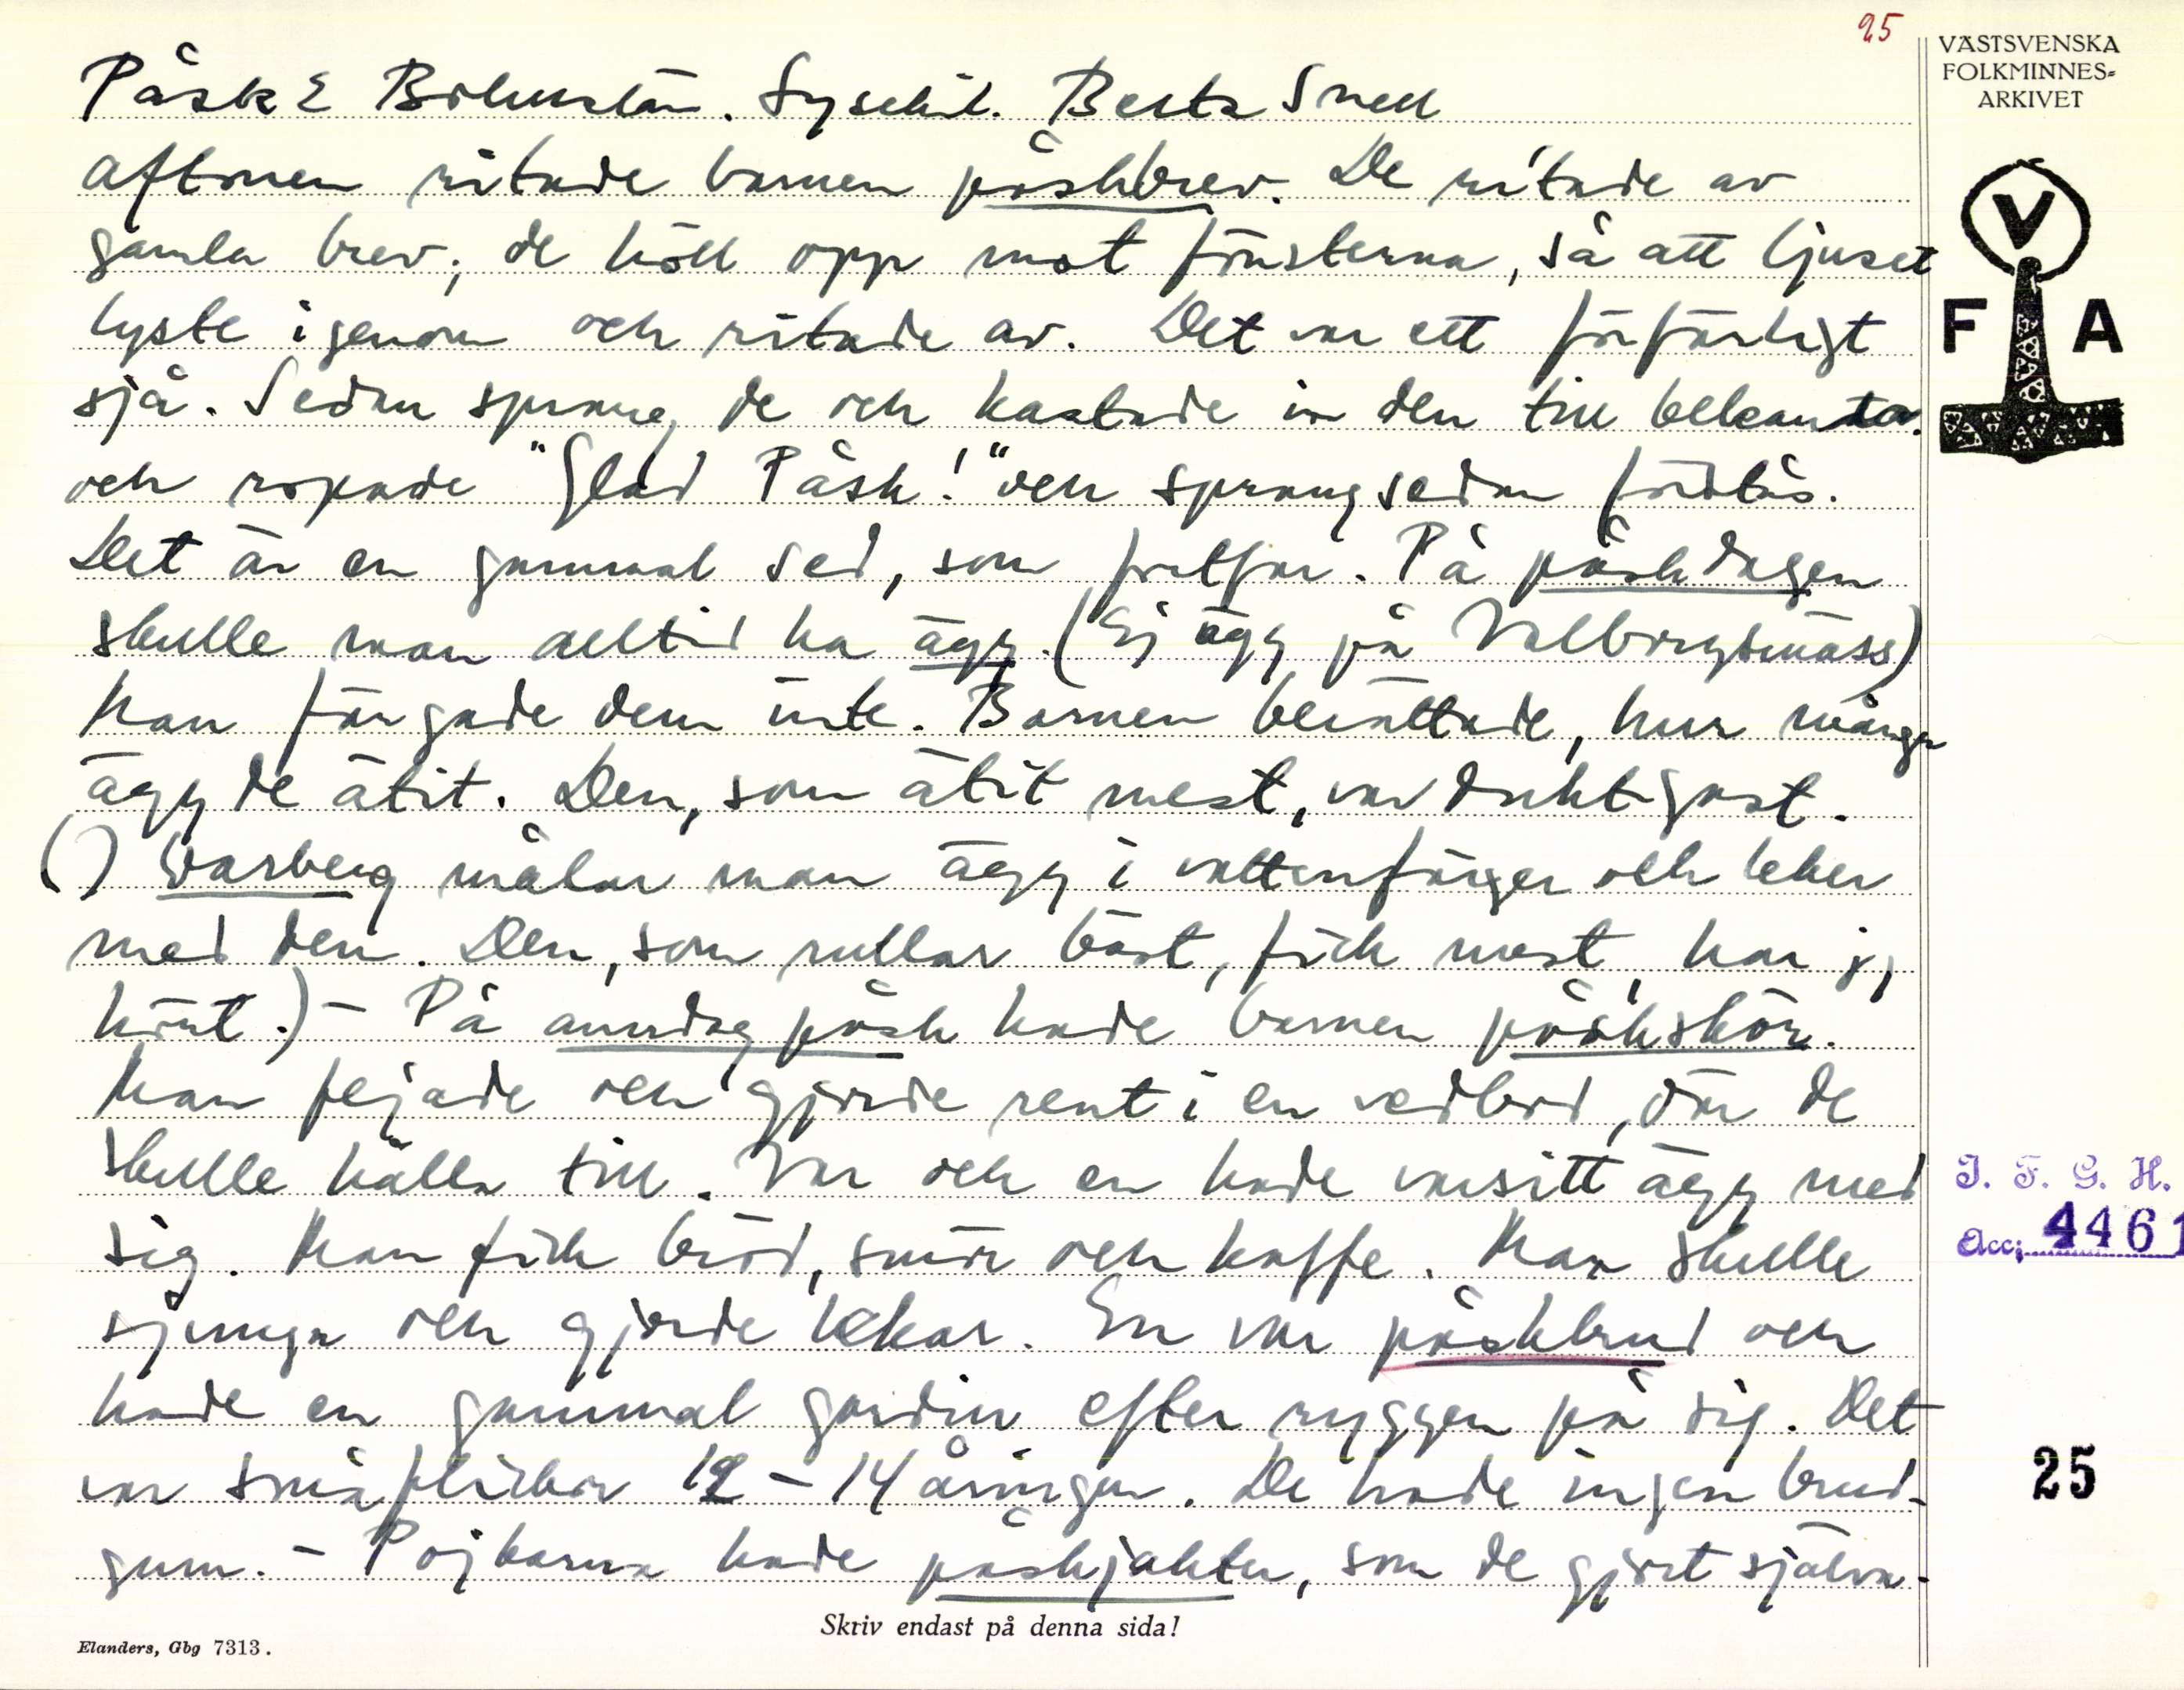 25
VÄSTSVENSKA
FOLKMINNES-
ARKIVET
Påsk E Bohuslän. Lysekil. Berta Snell
aftonen ritade barnen påskbrev. De ritade av
gamla brev; de höll opp mot fönsterna, så att ljuset
lyste igenom och ritade av. Det var ett förfärligt
sjå. Sedan sprang de och kastade in den till bekanta.
och ropade "Glad Påsk!" och sprang sedan förstås.
Det är en gammal sed, som fortfar. På påskdagen
skulle man alltid ha ägg. (Ej ägg på Valborgsmäss)
Man färgade dem inte. Barnen berättade, hur många
ägg de ätit. Den, som ätit mest, var duktigast.
(I Varberg målar man ägg i vattenfärger och leker
med dem. Den, som rullar bäst, fick mest, har jag
hört.) - På anndag påsk hade barnen påskskör.
Man fejade och gjorde rent i en vedbod, där de
skulle hålla till. Var och en hade varsitt ägg med
sig. Man fick bröd, smör och kaffe. Man skulle
sjunga och gjorde lekar. En var påskbrud och
hade en gammal gardin efter ryggen på sig. Det
var småflickor 12-14 åringar. De hade ingen brud-
gum. - Pojkarna hade påskjakter, som de gjort själva.
V
F A
I. F. G. H.
Acc; 4461
25
Skriv endast på denna sida!
Elanders, Gbg 7313.